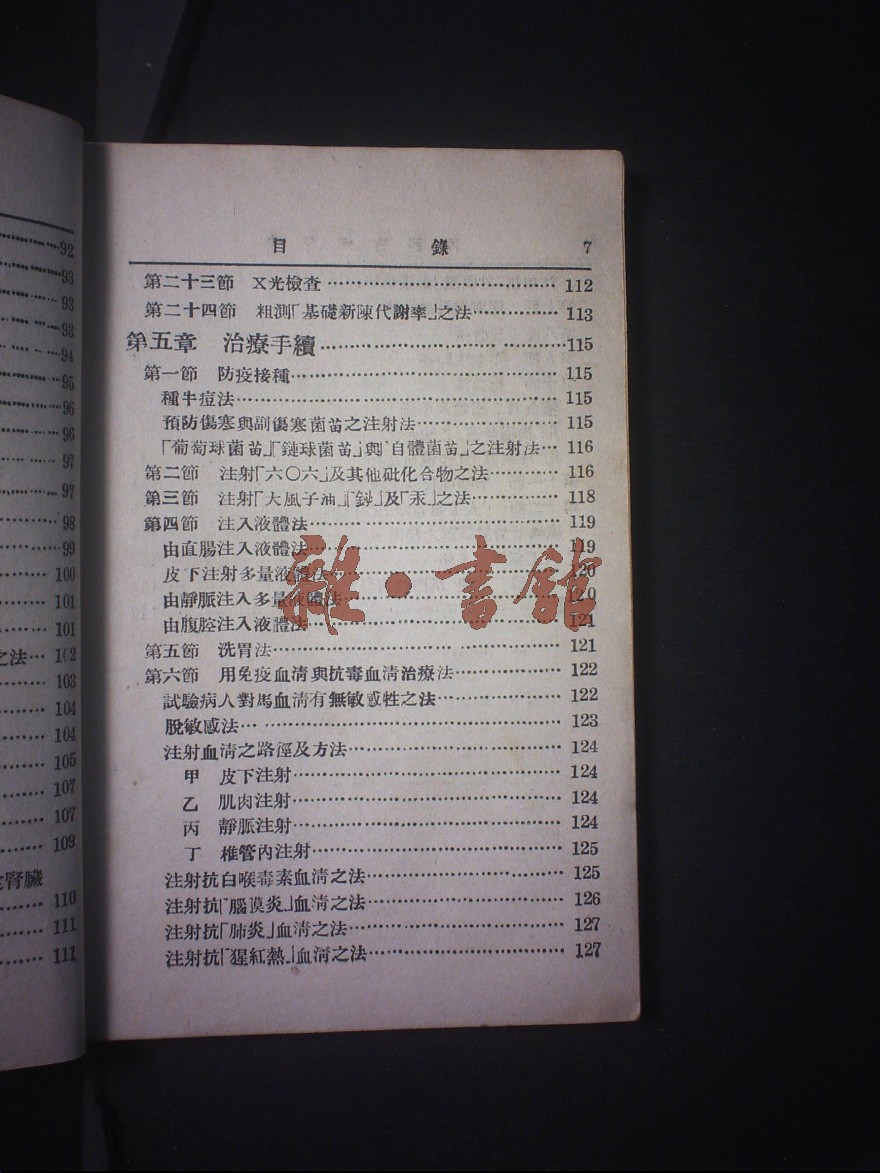 92
93
93
93
94
95
96
96
97
97
98
99
100
101
101
之法… 102
103
104
104
105
107
107
109
腎臟
110
111
111
目 錄 7
第二十三節 X光檢查…112
第二十四節 粗測「基礎新陳代謝率」之法…113
第五章 治療手續…115
第一節 防疫接種…115
種牛痘法…115
預防傷寒與副傷寒菌苗之注射法…115
「葡萄球菌苗」「鏈球菌苗」與「自體菌苗」之注射法…116
第二節 注射「六〇六」及其他砒化合物之法…116
第三節 注射「大風子油」「鉍」及「汞」之法…118
第四節 注入液體法…119
由直腸注入液體法…119
皮下注射多量液體法…120
由靜脈注入多量液體法…120
由腹腔注入液體法…121
第五節 洗胃法…121
第六節 用免疫血清與抗毒血清治療法…122
試驗病人對馬血清有無敏感性之法…122
脫敏感法…123
注射血清之路徑及方法…124
甲 皮下注射…124
乙 肌肉注射…124
丙 靜脈注射…124
丁 椎管內注射…125
注射抗白喉毒素血清之法…125
注射抗「腦膜炎」血清之法…126
注射抗「肺炎」血清之法…127
注射抗「猩紅熱」血清之法…127
雜·書館